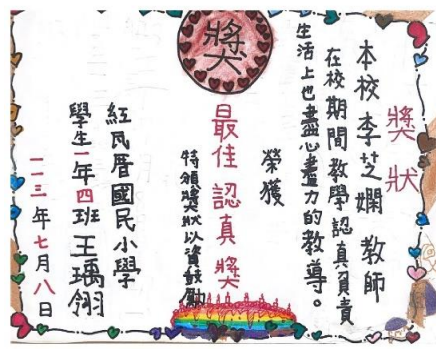 獎
獎狀
本校李芝嫻教師
在校期間教學認真負責
生活上也盡心盡力的教導。
榮獲
最佳認真獎
特頒獎狀以資鼓勵
紅瓦厝國民小學
學生一年四班王瑀翎
一一三年七月八日